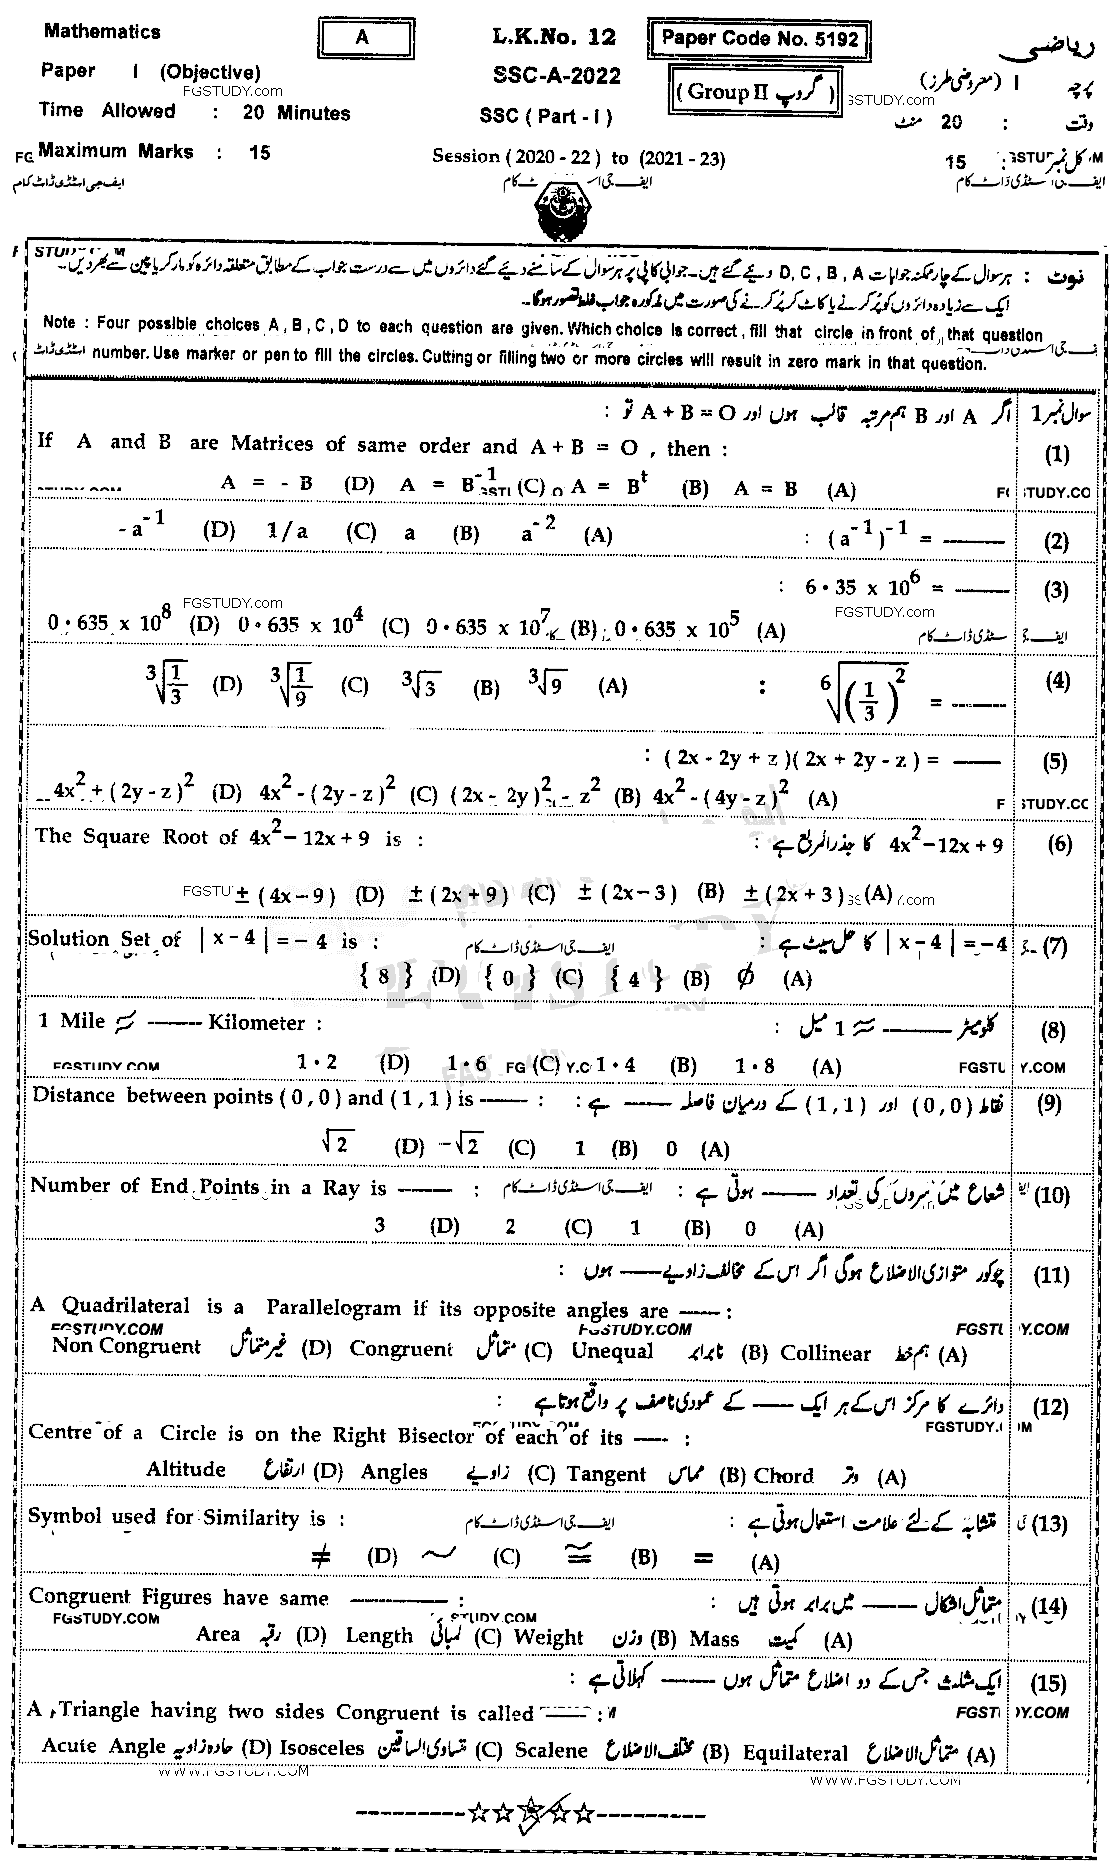 Mathematics A L.K.No. 12 Paper Code No. 5192 ریاضی
Paper I (Objective) SSC-A-2022 (Group II گروپ) پرچہ I (معروضی طرز)
FGSTUDY.COM
Time Allowed : 20 Minutes SSC ( Part - I ) وقت : 20 منٹ
Maximum Marks : 15 Session ( 2020 - 22 ) to (2021 - 23) کل نمبر : 15
ایف جی اسٹڈی ڈاٹ کام
نوٹ : ہر سوال کے چار ممکنہ جوابات A ، B ، C ، D دئیے گئے ہیں۔ جوابی کاپی پر ہر سوال کے سامنے دئیے گئے دائروں میں سے درست جواب کے مطابق متعلقہ دائرہ کو مارکر یا پین سے بھر دیں۔
ایک سے زیادہ دائروں کو پُر کرنے یا کاٹ کر پُر کرنے کی صورت میں مذکورہ جواب غلط تصور ہوگا۔
Note : Four possible choices A , B , C , D to each question are given. Which choice is correct , fill that circle in front of that question
number. Use marker or pen to fill the circles. Cutting or filling two or more circles will result in zero mark in that question.
سوال نمبر 1 اگر A اور B ہم مرتبہ قالب ہوں اور A + B = O تو :
If A and B are Matrices of same order and A + B = O , then : (1)
A = - B (D) A = B⁻¹ (C) A = Bᵗ (B) A = B (A)
-a⁻¹ (D) 1/a (C) a (B) a⁻² (A) : (a⁻¹)⁻¹ = ——— (2)
: 6·35 x 10⁶ = ——— (3)
FGSTUDY.com FGSTUDY.com
0·635 x 10⁸ (D) 0·635 x 10⁴ (C) 0·635 x 10⁷ (B) 0·635 x 10⁵ (A)
∛(1/3) (D) ∛(1/9) (C) ∛3 (B) ∛9 (A) : ⁶√(1/3)² = ——— (4)
: ( 2x - 2y + z )( 2x + 2y - z ) = ——— (5)
4x² + ( 2y - z )² (D) 4x² - ( 2y - z )² (C) ( 2x - 2y )² - z² (B) 4x² - ( 4y - z )² (A)
The Square Root of 4x² - 12x + 9 is : 4x² - 12x + 9 کا جذرالمربع ہے : (6)
± ( 4x - 9 ) (D) ± ( 2x + 9 ) (C) ± ( 2x - 3 ) (B) ± ( 2x + 3 ) (A)
Solution Set of | x - 4 | = - 4 is : ایف جی اسٹڈی ڈاٹ کام | x - 4 | = - 4 کا حل سیٹ ہے : (7)
{ 8 } (D) { 0 } (C) { 4 } (B) ϕ (A)
1 Mile ≈ ——— Kilometer : کلومیٹر ——— ≈ 1 میل : (8)
FGSTUDY.COM 1·2 (D) 1·6 (C) 1·4 (B) 1·8 (A)
Distance between points ( 0 , 0 ) and ( 1 , 1 ) is ——— : نقاط (0,0) اور (1,1) کے درمیان فاصلہ ——— ہے : (9)
√2 (D) -√2 (C) 1 (B) 0 (A)
Number of End Points in a Ray is ——— : ایف جی اسٹڈی ڈاٹ کام شعاع میں سِروں کی تعداد ——— ہوتی ہے : (10)
3 (D) 2 (C) 1 (B) 0 (A)
چوکور متوازی الاضلاع ہوگی اگر اس کے مخالف زاویے ——— ہوں : (11)
A Quadrilateral is a Parallelogram if its opposite angles are ——— :
FGSTUDY.COM FGSTUDY.COM
Non Congruent غیر متماثل (D) Congruent متماثل (C) Unequal نابرابر (B) Collinear ہم خط (A)
دائرے کا مرکز اس کے ہر ایک ——— کے عمودی ناصف پر واقع ہوتا ہے : (12)
Centre of a Circle is on the Right Bisector of each of its ——— :
Altitude ارتفاع (D) Angles زاویے (C) Tangent مماس (B) Chord وتر (A)
Symbol used for Similarity is : ایف جی اسٹڈی ڈاٹ کام متشابہ کے لئے علامت استعمال ہوتی ہے : (13)
≠ (D) ~ (C) ≅ (B) = (A)
Congruent Figures have same ——— : متماثل اشکال ——— میں برابر ہوتی ہیں : (14)
FGSTUDY.COM
Area رقبہ (D) Length لمبائی (C) Weight وزن (B) Mass کمیت (A)
ایک مثلث جس کے دو اضلاع متماثل ہوں ——— کہلاتی ہے : (15)
A Triangle having two sides Congruent is called ——— :
Acute Angle حادہ زاویہ (D) Isosceles متساوی الساقین (C) Scalene مختلف الاضلاع (B) Equilateral متماثل الاضلاع (A)
WWW.FGSTUDY.COM WWW.FGSTUDY.COM